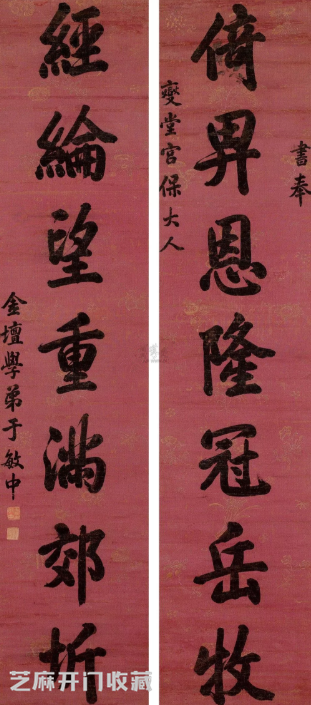 書奉
倚畀恩隆冠岳牧
燮堂宮保大人
經綸望重滿郊圻
金壇學弟于敏中
芝麻开门收藏